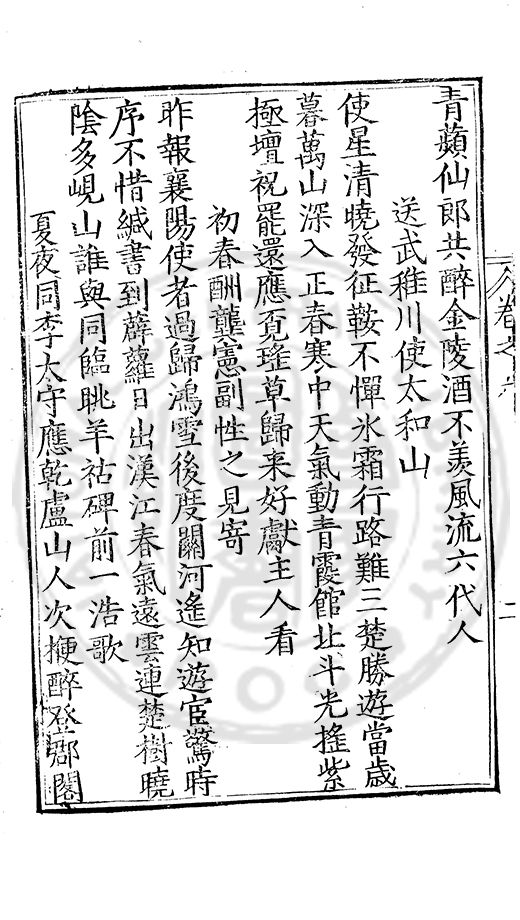 青蘋仙郎共醉金陵酒不羨風流六代人
送武稚川使太和山
使星清曉發征鞍不憚氷霜行路難三楚勝遊當歲
暮萬山深入正春寒中天氣動青霞館北斗光搖紫
極壇祝罷還應覔瑤草歸来好獻主人看
初春酬龔憲副性之見寄
昨報襄陽使者過歸鴻雪後度關河遙知遊宦驚時
序不惜緘書到薜蘿日出漢江春氣遠雲連楚樹曉
陰多峴山誰與同臨眺羊祜碑前一浩歌
夏夜同李太守應乾盧山人次楩醉登郡閣
卷之
二